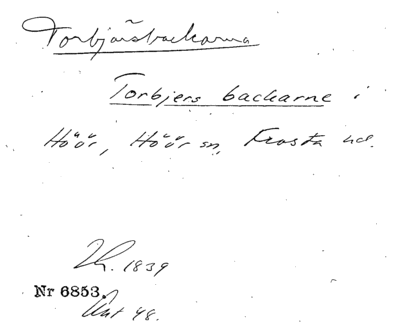 Torbjärsbackarna
Torbjers backarne i
Höör, Höör sn, Frosta hd.
1839
Nr 6853.
Akt 48.